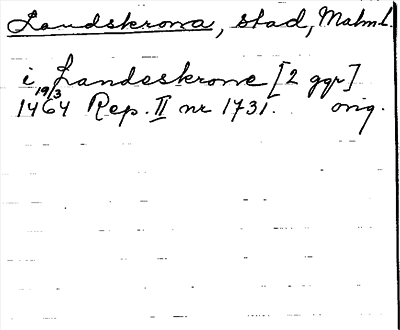 Landskrona, stad, Malm.l.
i Landeskrone [2 ggr]
19/3
1464 Rep. II nr 1731. orig.